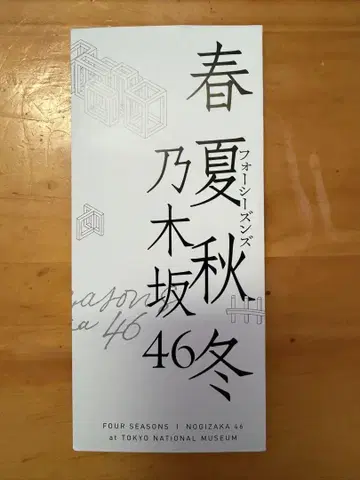 春夏秋冬
フォーシーズンズ
乃木坂46
easons
ka 46
FOUR SEASONS | NOGIZAKA 46
at TOKYO NATIONAL MUSEUM